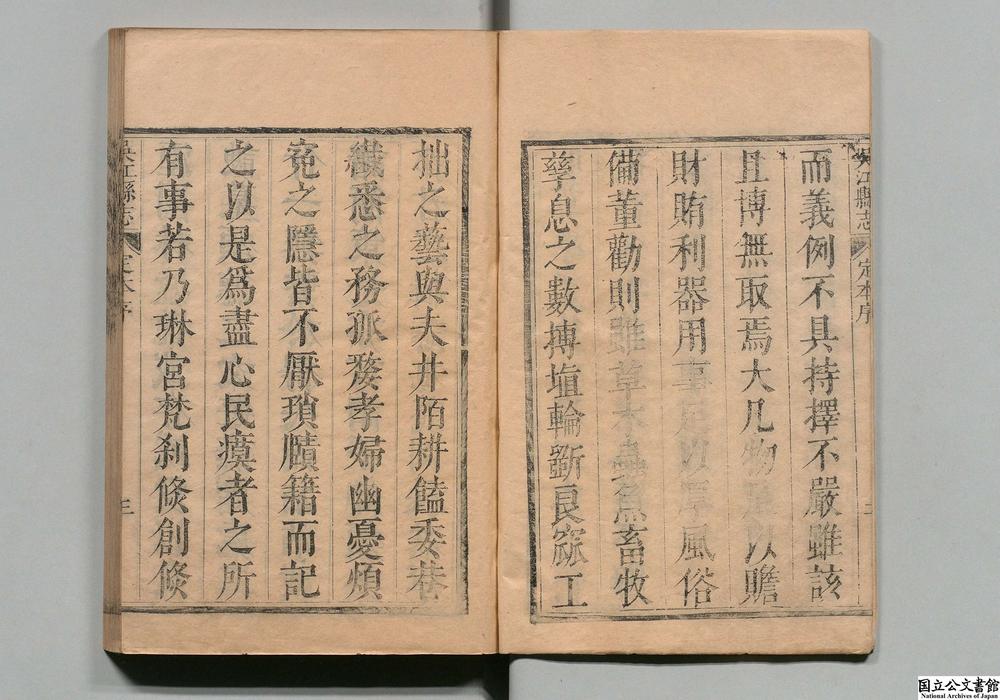 吳江縣志 定本序 二
而義例不具持擇不嚴雖該
且博無取焉大凡物足以贍
財賄利器用事足以厚風俗
備董勸則雖草木蟲魚畜牧
孳息之數摶埴輪斵良窳工
拙之藝與夫井陌耕饁委巷
纖悉之務孤嫠孝婦幽憂煩
寃之隱皆不厭瑣賾籍而記
之以是爲盡心民瘼者之所
有事若乃琳宮梵刹倐創倐
吳江縣志 定本序 三
国立公文書館
National Archives of Japan